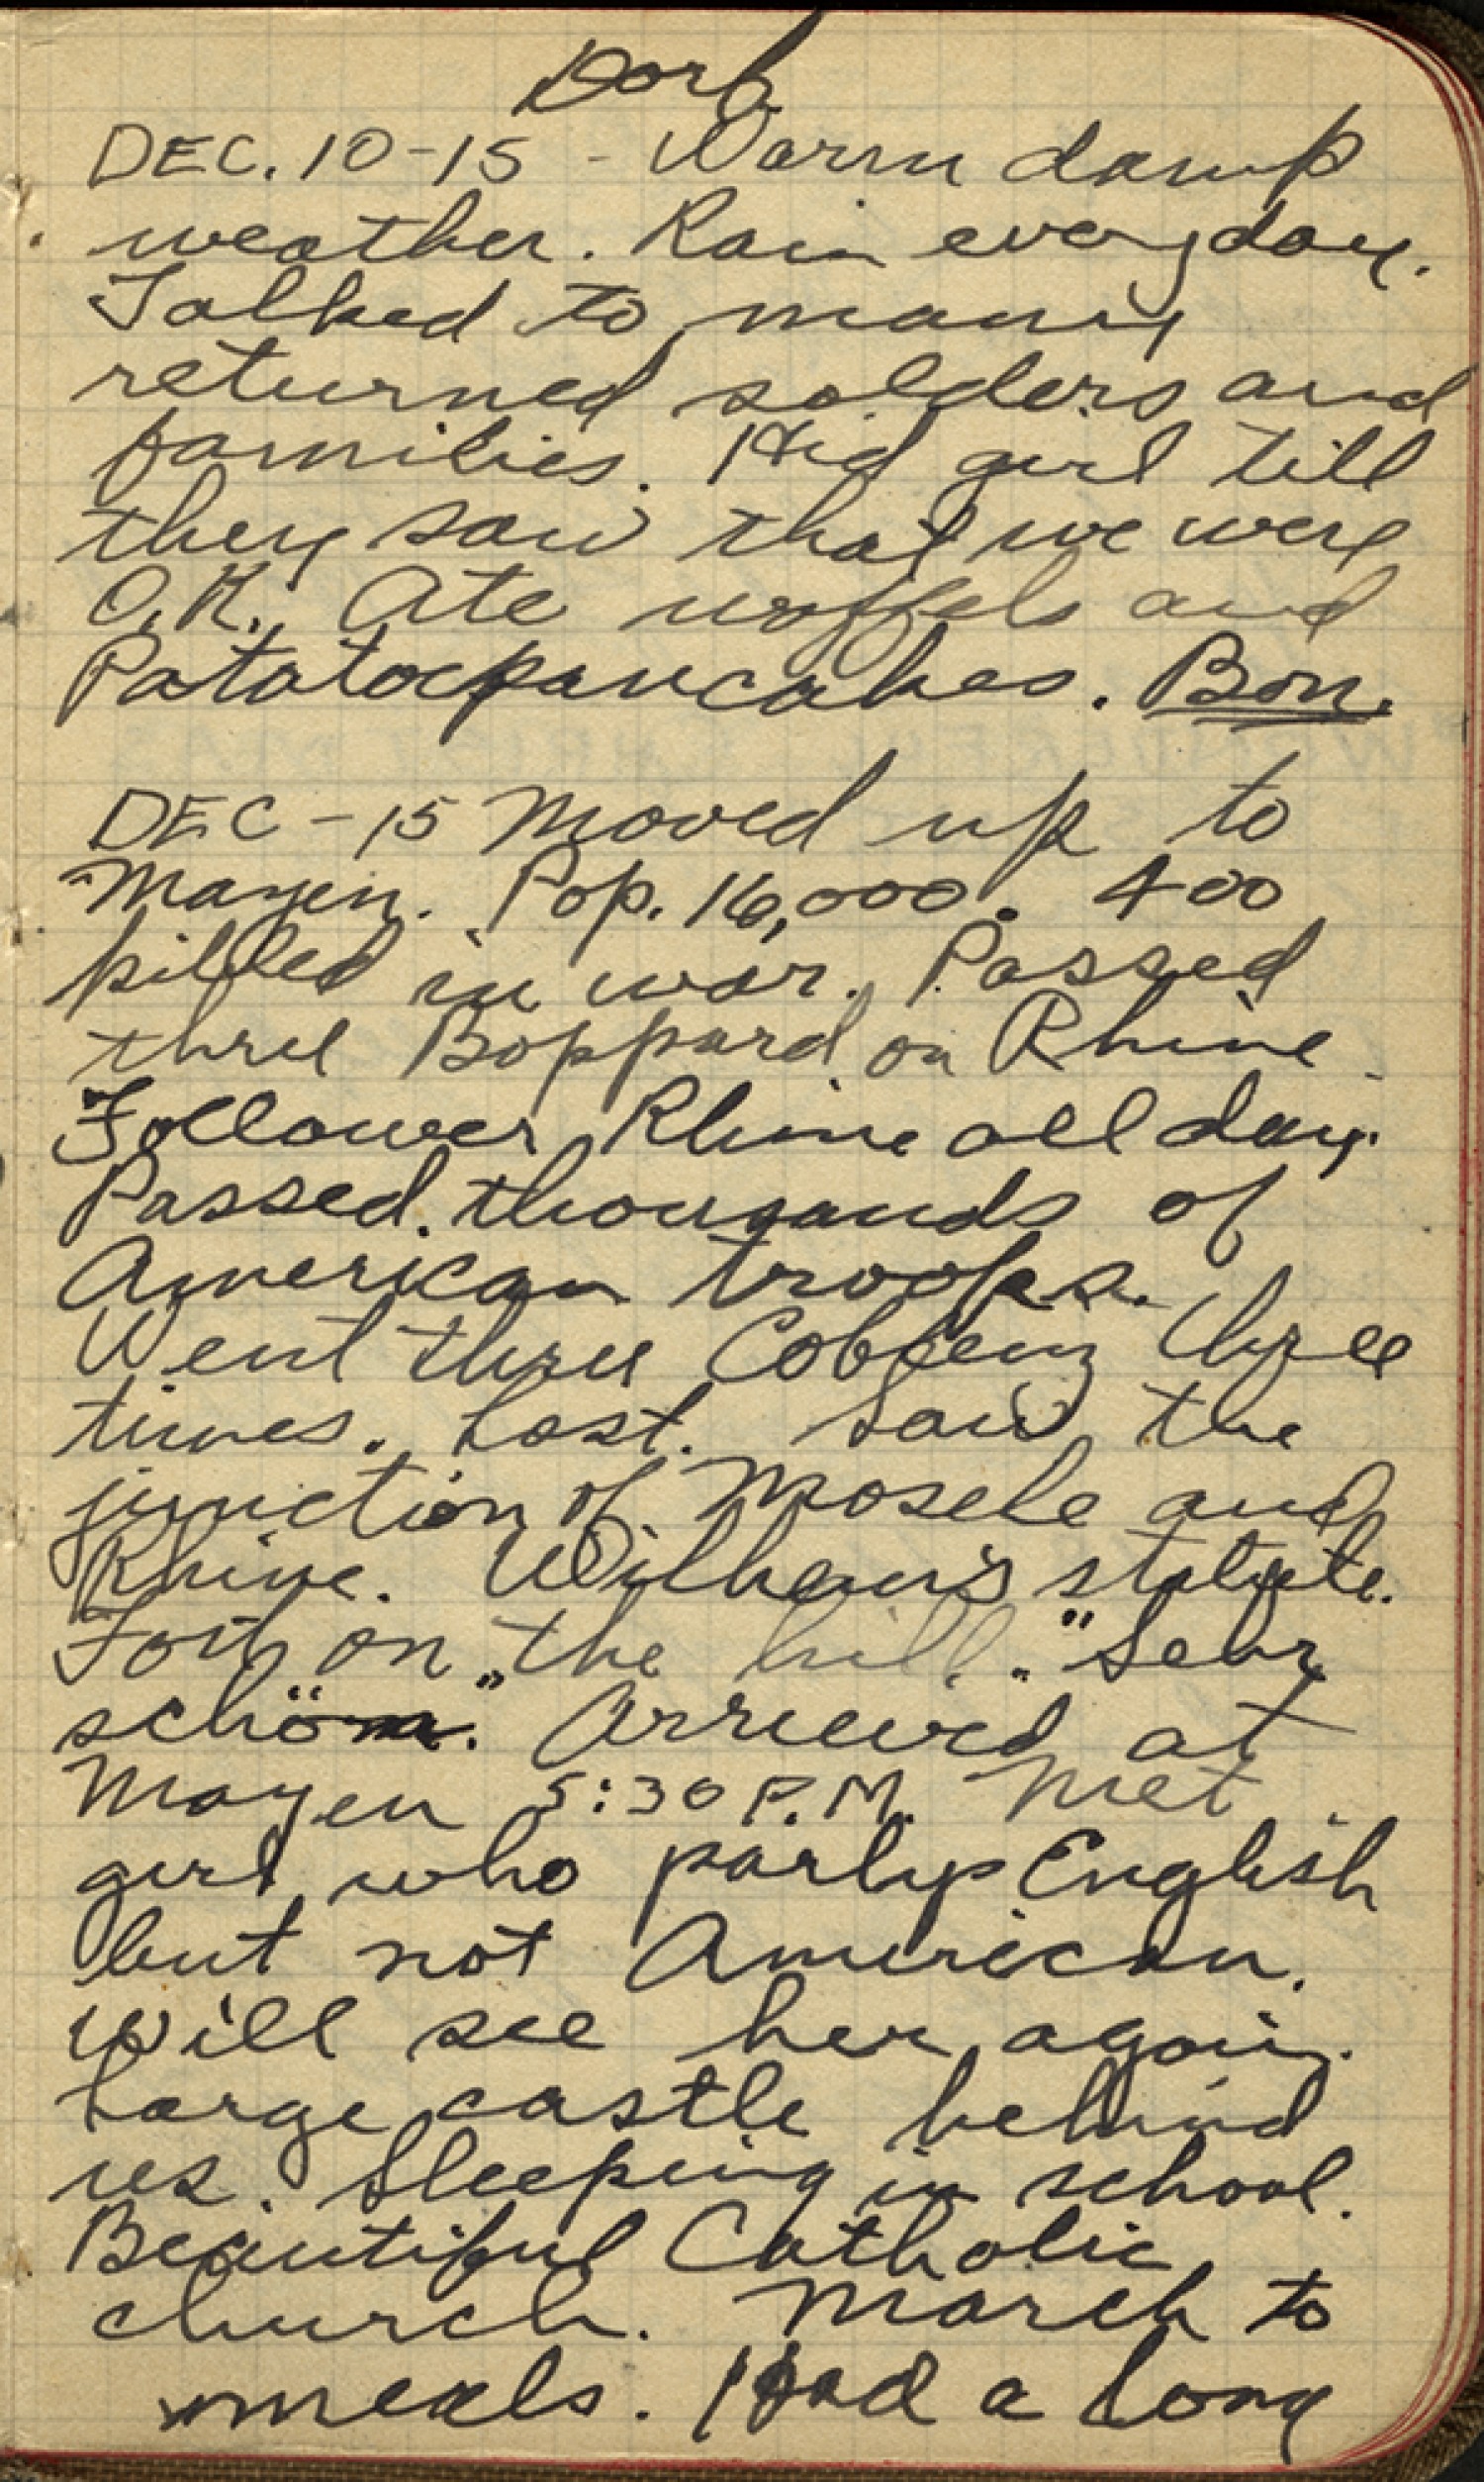 Dorf
DEC. 10-15 - Warm damp
weather. Rain every day.
Talked to many
returned solders and
families. Hid girl till
they saw that we were
O.K. Ate woffels and
Patatoepancakes. Bon.
DEC - 15 Moved up to
Mayen. Pop. 16,000. 400
killed in war. Passed
thru Boppard on Rhine
Follower Rhine all day.
Passed thousands of
American troops.
Went thru Coblenz three
times. Lost. Saw the
junction of Mosele and
Rhine. Wilhem's statute.
Fort on the hill. "Sehr
schön." Arrieved at
Mayen 5:30 P.M. Met
girl who parlys English
but not American.
Will see her again.
Large castle behind
us. Sleeping in school.
Beautiful Catholic
church. March to
meals. Had a long